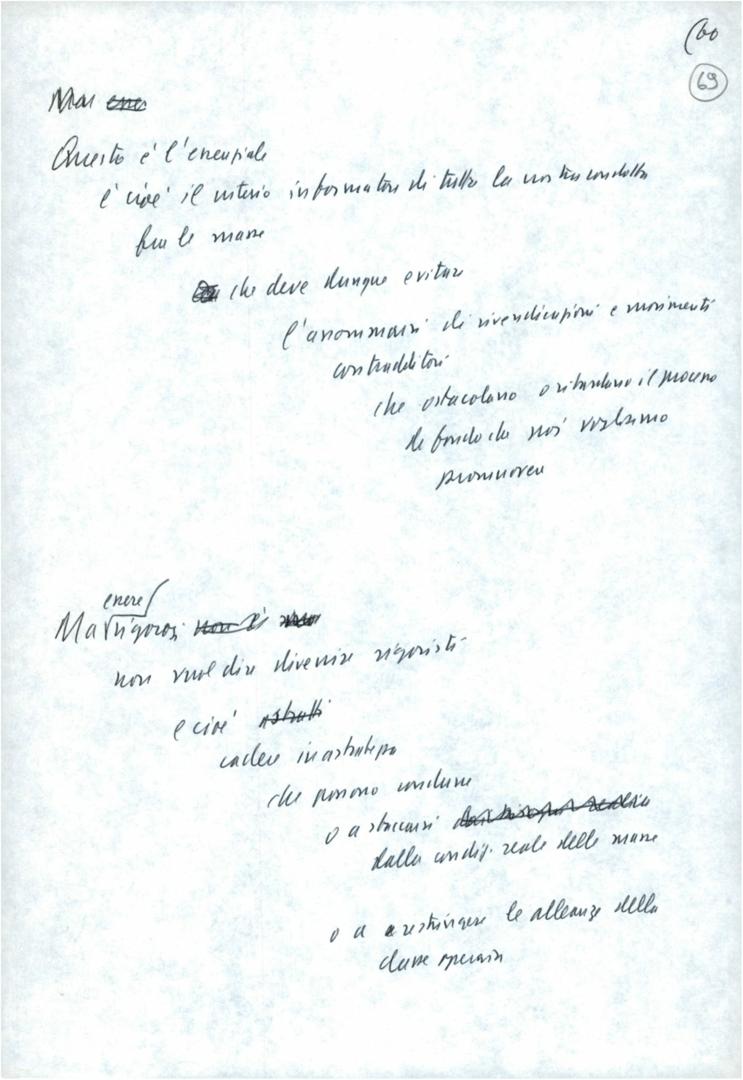 (60
69
Ma
Questo è l'essenziale
è cioè il criterio informatore di tutta la nostra condotta
fra le masse
che deve dunque evitare
l'ammassarsi di rivendicazioni e movimenti
contradditori
che ostacolano o ritardano il processo
di fondo che noi vogliamo
promuovere
essere
Ma rigorosi non
non vuol dire divenire rigoristi
e cioè astratti
cadere in astrattezza
che possono condurre
o a staccarsi
dalla condiz. reale delle masse
o a restringere le alleanze della
classe operaia